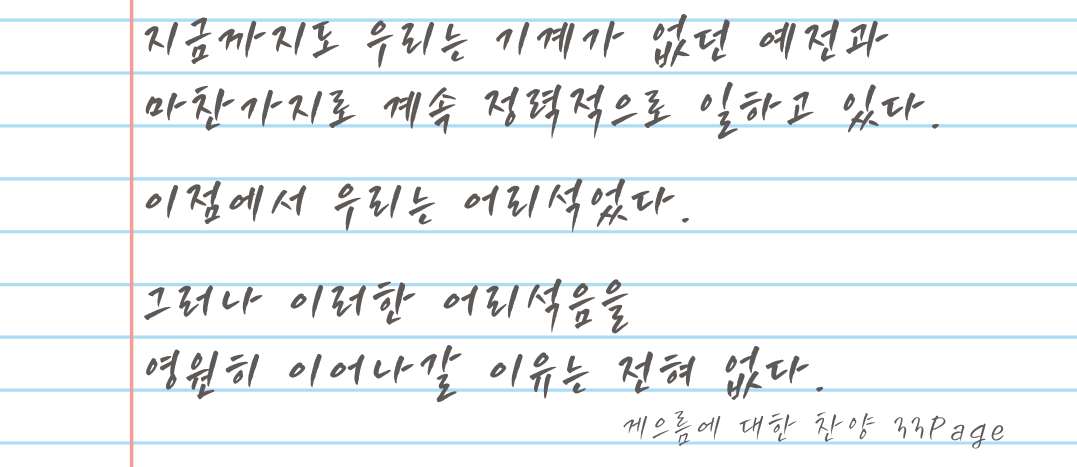 지금까지도 우리는 기계가 없던 예전과
마찬가지로 계속 정력적으로 일하고 있다.
이점에서 우리는 어리석었다.
그러나 이러한 어리석음을
영원히 이어나갈 이유는 전혀 없다.
게으름에 대한 찬양 33Page